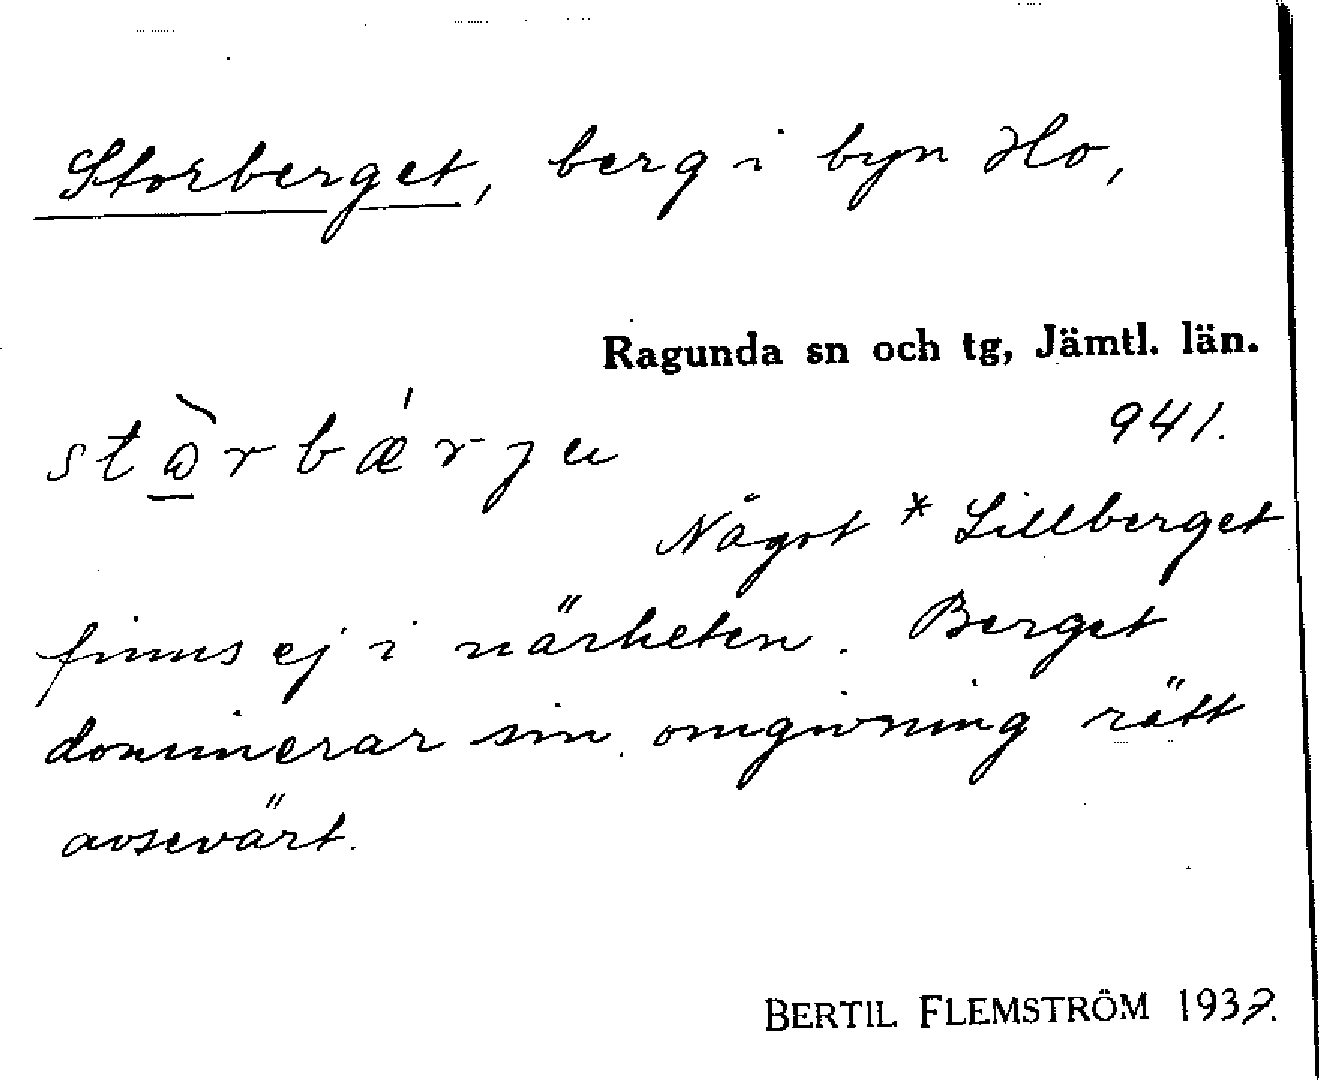 Storberget, berg i byn Ho,
Ragunda sn och tg, Jämtl. län.
941.
stòrbǽrjei
Något * Lillberget
finns ej i närheten. Berget
dominerar sin omgivning rätt
avsevärt.
BERTIL FLEMSTRÖM 1937.